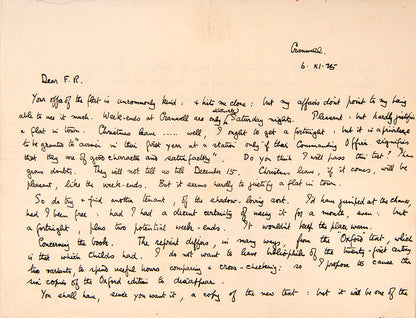 Cranwell.
6. XI. 25
Dear F.R.
Your offer of the flat is uncommonly kind: & hits me close: but my affairs don't point to my being
able to use it much. Week-ends at Cranwell are only (alternate) Saturday nights. Pleasant: but hardly justifies
a flat in town. Christmas leave ..... well, I ought to get a fortnight: but it is a privilege
to be granted to airmen in their first year at a station only "if their Commanding Officer signifies
that they are of good character and satisfactory". Do you think I will pass this test? I have
grave doubts. They will not tell us till December 15. Christmas leave, if it comes, will be
pleasant, like the week-ends. But it seems hardly to justify a flat in town.
So do try & find another tenant, of the shadow-loving sort. I'd have jumped at the chance,
had I been free: had I had a decent certainty of using it for a month, even: but
a fortnight, plus two potential week-ends. It wouldn't keep the place warm.
Concerning the book. The reprint differs, in many ways from the "Oxford" text, which
is that which Childs had. I do not want to leave bibliophiles of the twenty-first century
two variants, to spend useful hours comparing & cross-checking: so I propose to cause the
six copies of the Oxford edition to disappear.
You shall have, since you want it, a copy of the new text: but it will be one of the